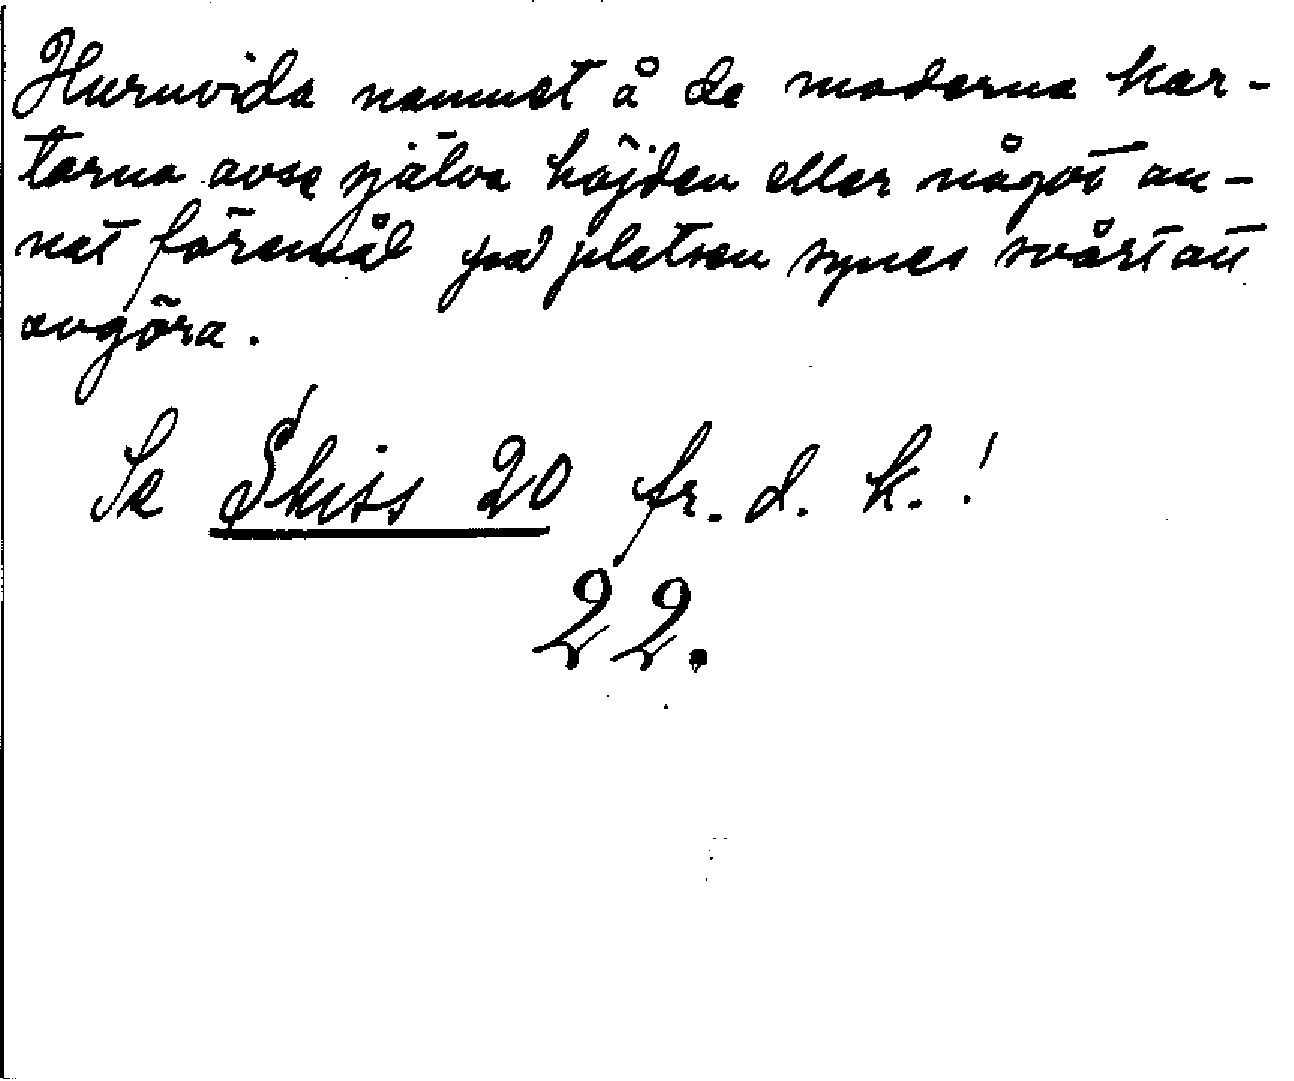 Huruvida namnet å de moderna kar-
torna avse själva höjden eller något an-
nat föremål på platsen synes svårt att
avgöra.
Se Skiss 20 fr. d. k.!
22.